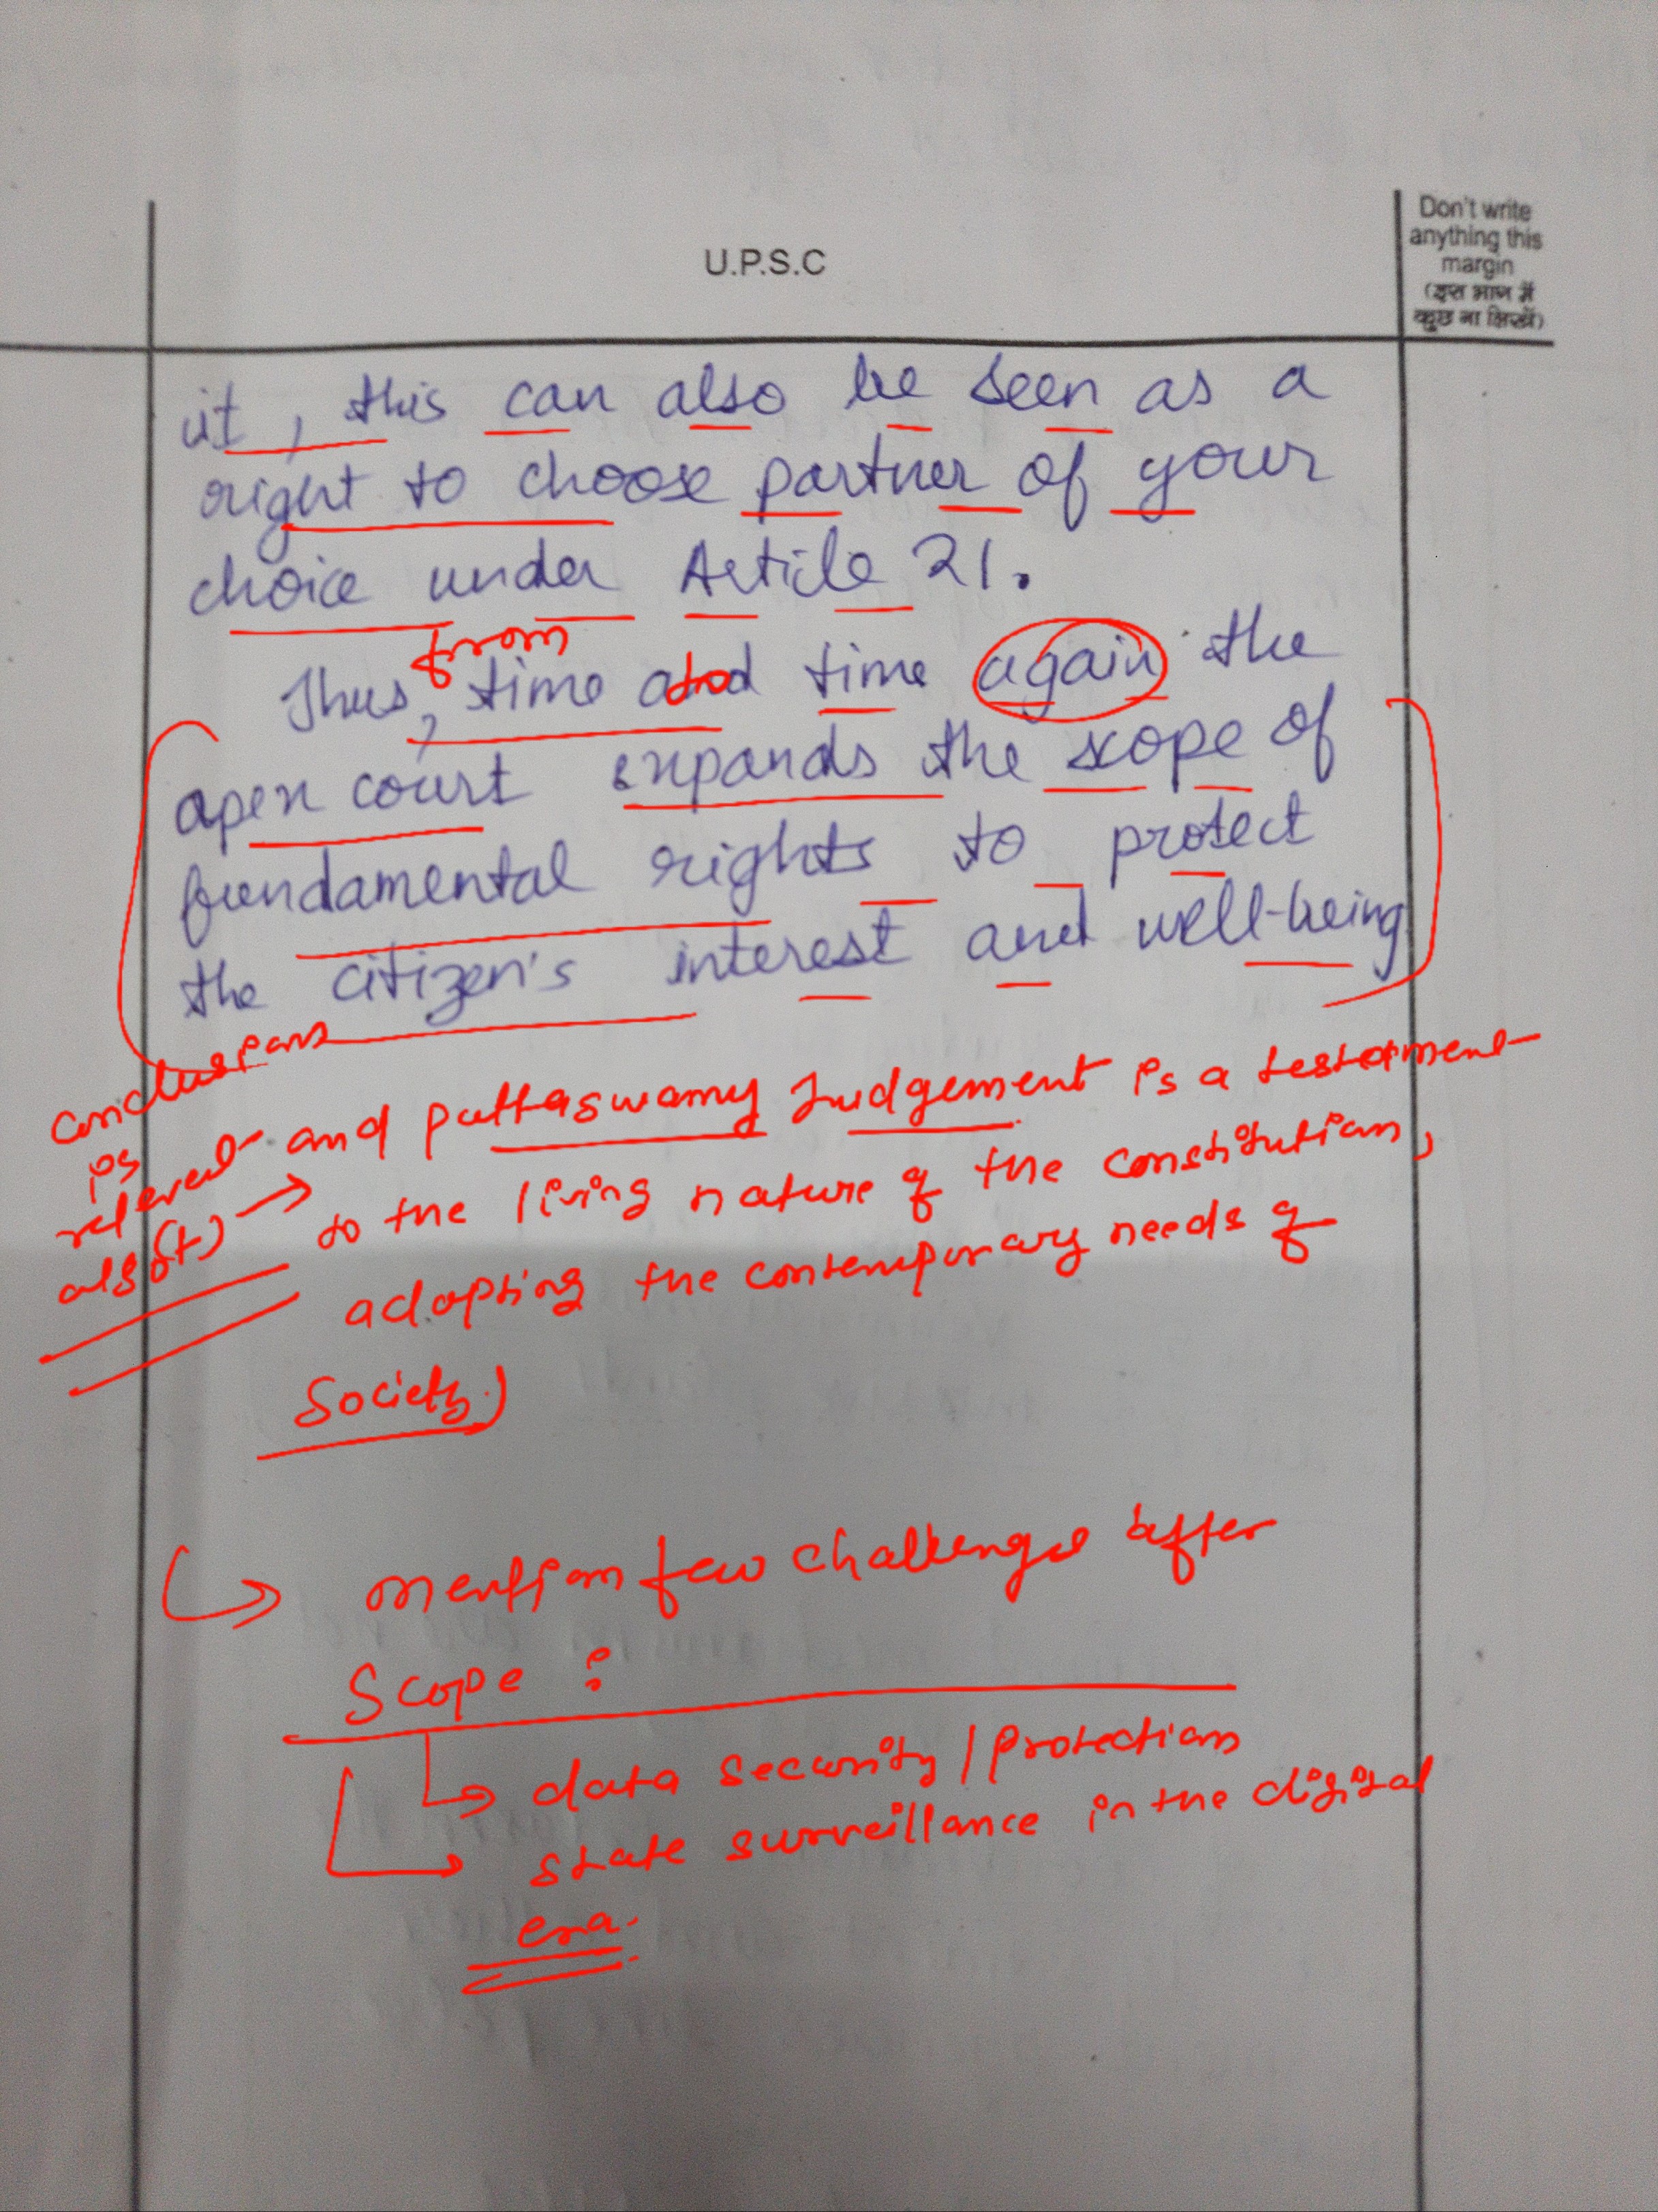 Don't write
anything this
margin
(इस भाग में
कुछ ना लिखें)
U.P.S.C
it, this can also be seen as a
right to choose partner of your
choice under Article 21.
from
Thus, time and to time again the
apex court expands the scope of
fundamental rights to protect
the citizen's interest and well-being
conclusion
is
relevant
also (+) →
and puttaswamy Judgement is a testament
to the living nature of the constitution,
adopting the contemporary needs of
Society.)
mention few challenges after
Scope :
data security / protection
state surveillance in the digital
era.